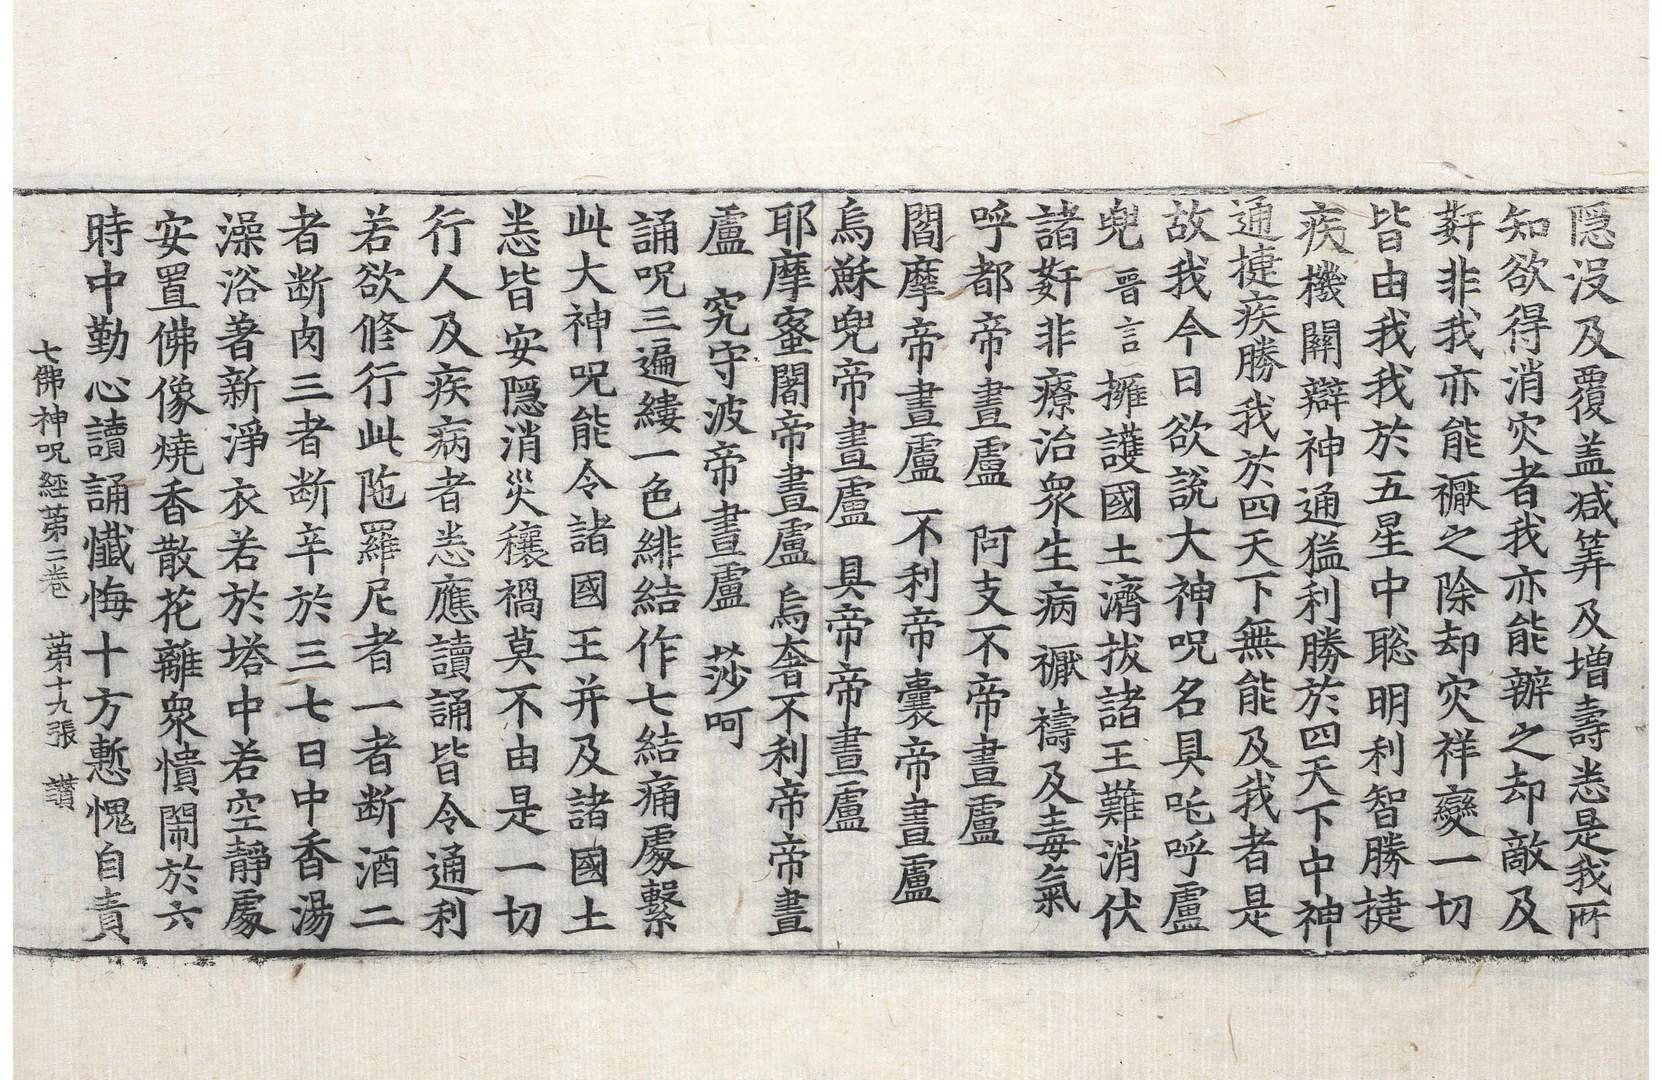 隱沒及覆盖减筭及增壽悉是我所
知欲得消灾者我亦能辦之却敵及
姧非我亦能禳之除却灾祥變一切
皆由我我於五星中聡明利智勝揵
疾機關辯神通猛利勝於四天下中神
通揵疾勝我於四天下無能及我者是
故我今日欲說大神呪名具吒呼盧
兜 晉言擁護國土濟拔諸王難消伏
諸姧非療治衆生病禳禱及毒氣
呼都帝晝盧 阿支不帝晝盧
閻摩帝晝盧 不利帝囊帝晝盧
烏蘇兜帝晝盧 具帝帝晝盧
耶摩蜜闍帝晝盧 烏奢不利帝帝晝
盧 究守波帝晝盧 莎呵
誦呪三遍縷一色緋結作七結痛處繫
此大神呪能令諸國王并及諸國土
悉皆安隱消災穰禍莫不由是一切
行人及疾病者悉應讀誦皆令通利
若欲修行此陁羅尼者一者断酒二
者断肉三者断辛於三七日中香湯
澡浴著新淨衣若於塔中若空靜處
安置佛像燒香散花離衆憒閙於六
時中勤心讀誦懺悔十方慙愧自責
七佛神呪經苐二卷 苐十九張 讃